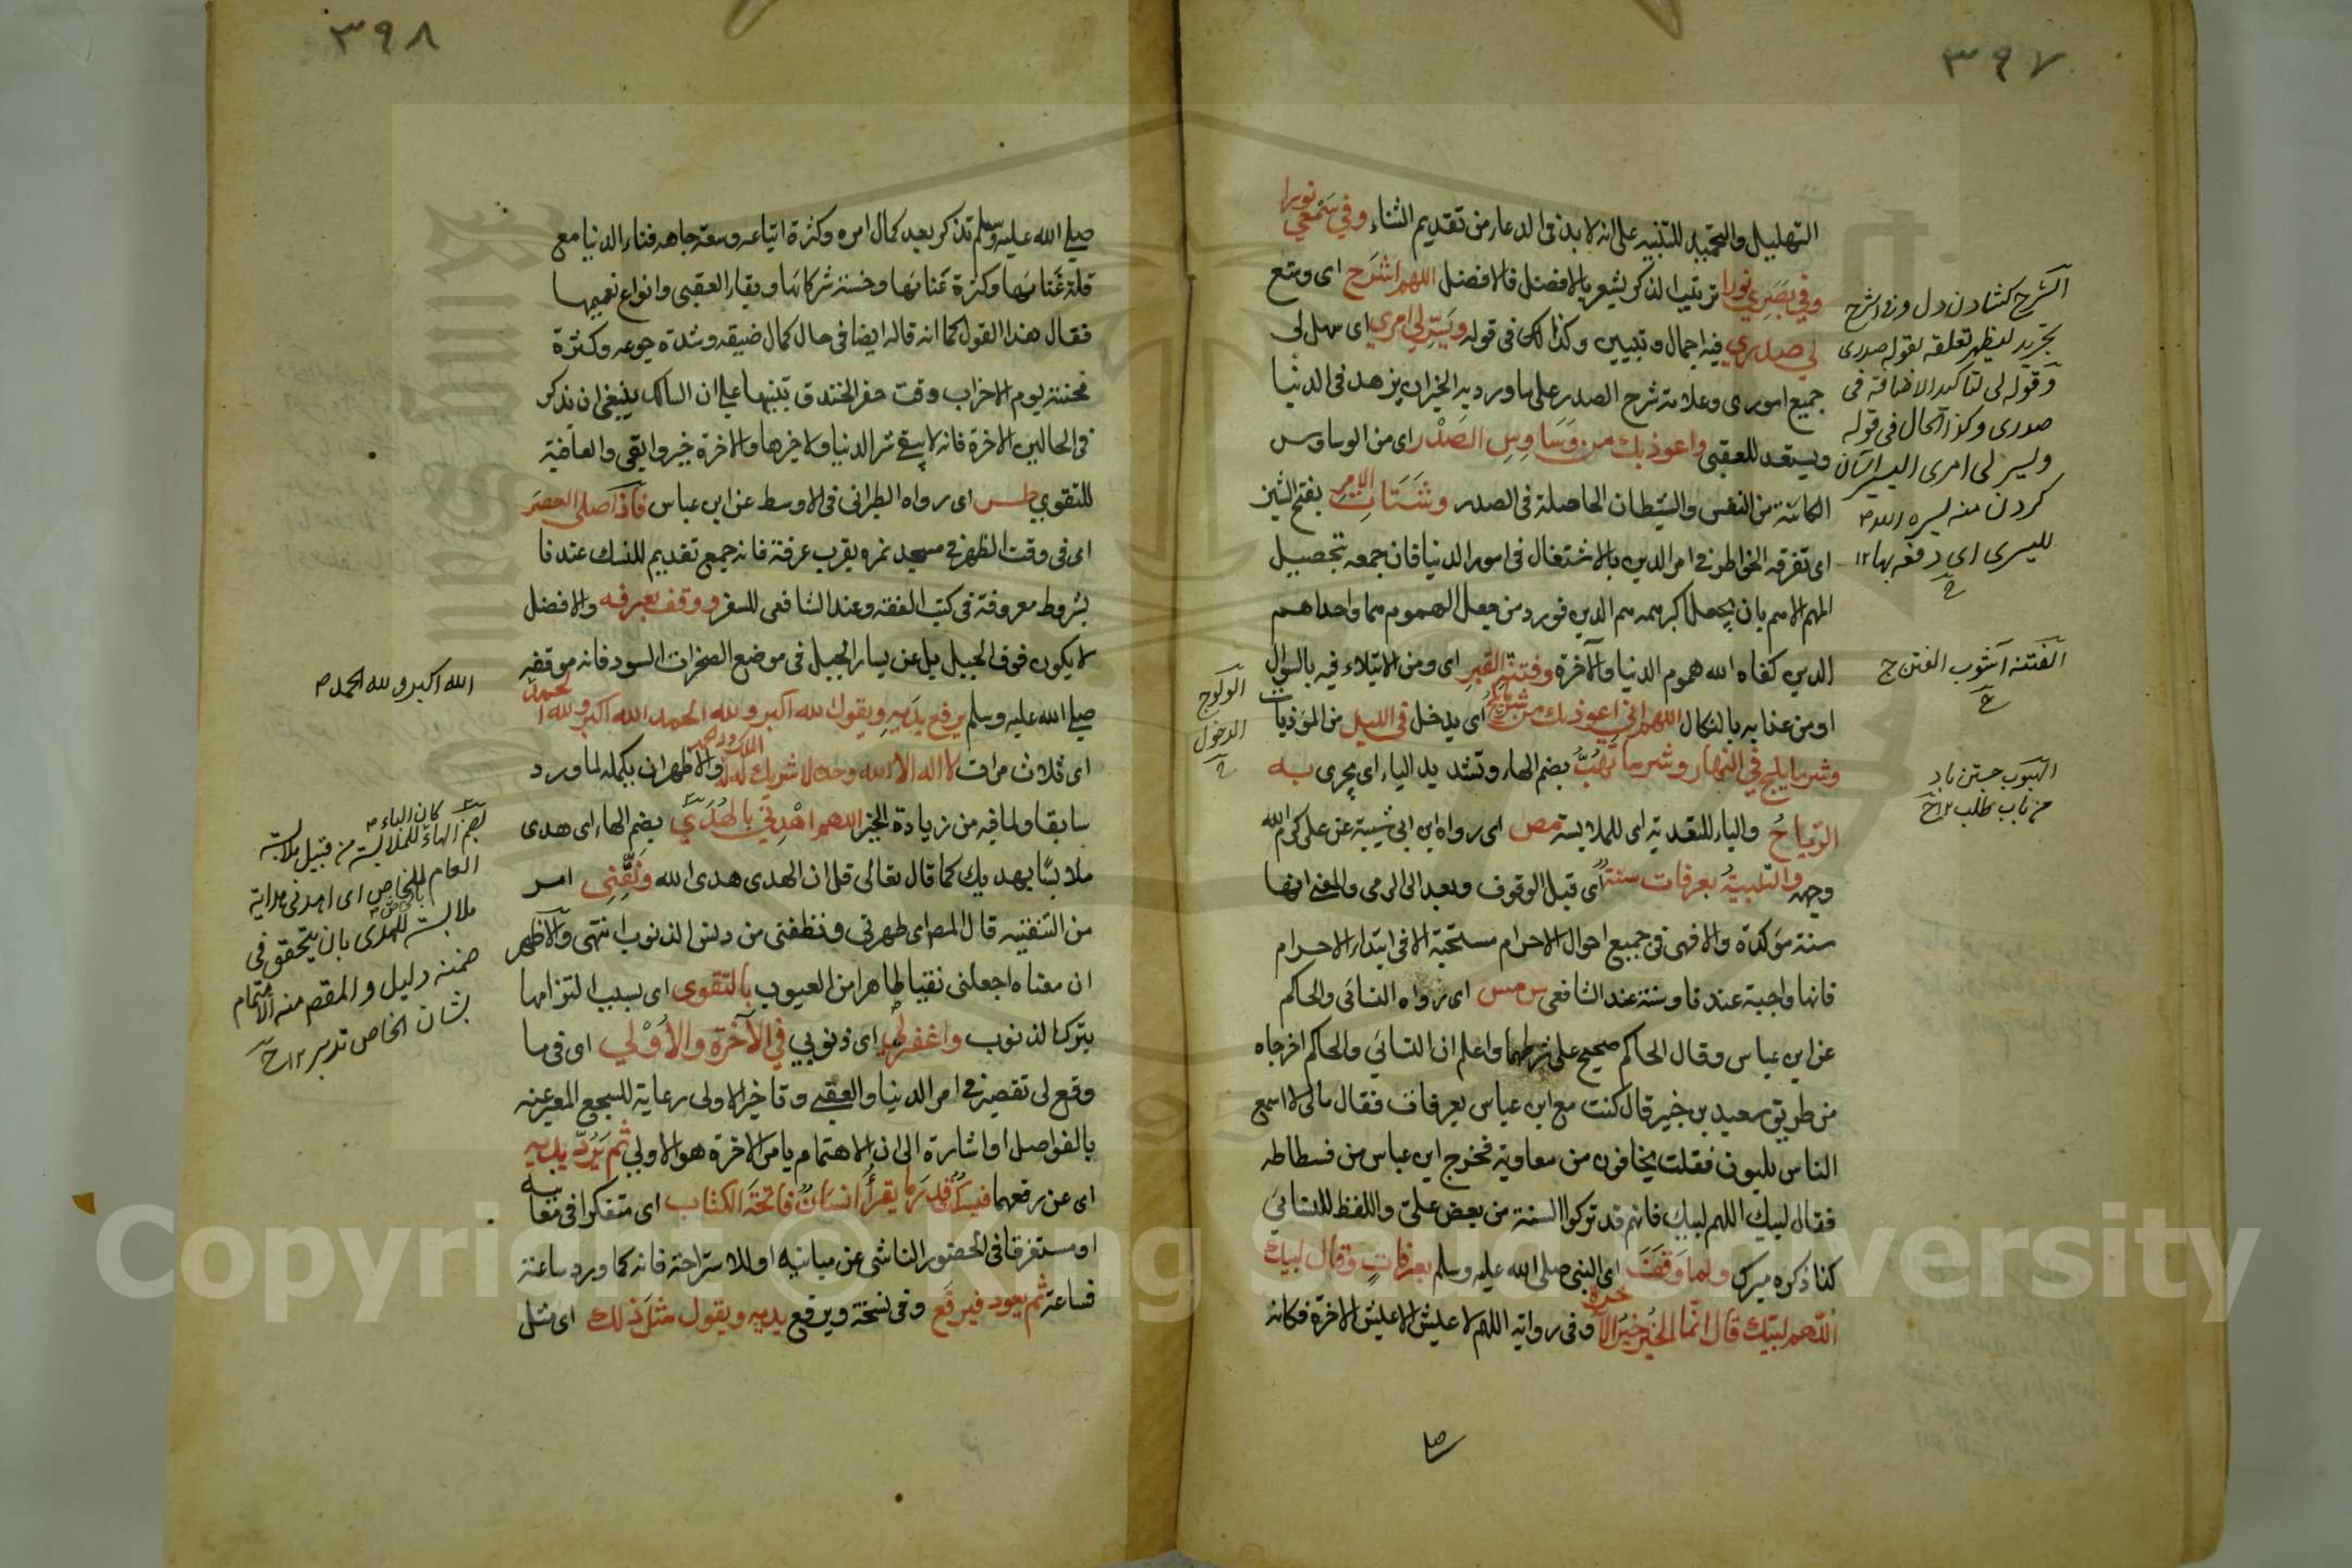 ٣٩٧
التهليل والتحميد للتنبيه على انه لا بد في الدعاء من تقديم الثناء وفي سَمْعي نورا
وفي بَصَرِي نورا ترتيب الذكر يشعر بالافضل فالافضل اللهم اشرح اى وسّع
لي صدري فيه اجمال وتبيين وكذلك في قوله ويَسِّر لي امري اى سهل لى
جميع امورى وعلامة شرح الصدر على ما ورد به الخبر ان يزهد في الدنيا
ويستعد للعقبى واعوذ بك من وَسَاوِسِ الصَدْر اى من الوساوس
الكائنة من النفس والشيطان الحاصلة في الصدر وشَتَاتِ الامر بفتح الشين
اى تفرقة الخواطر في امر الدين بالاشتغال في امور الدنيا فان جمعه بتحصيل
المهم الاهم بان يجعل اكبر همه هم الدين فورد من جعل الهموم هما واحدا هم
الدين كفاه الله هموم الدنيا والآخرة وفتنة القبر اى ومن الابتلاء فيه بالسؤال
او من عذابه بالنكال اللهم اني اعوذ بك من شر ما يلج اى يدخل في الليل من المؤذيات
وشر ما يلج في النهار وشر ما تَهُبُّ بضم الهاء وتشديد الباء اى يجرى به
الرِّياحُ والباء للتعدية اى للملابسة مص اى رواه ابن ابى شيبة عن على كرم الله
وجهه والتلبية بعرفات سنة اى قبل الوقوف وبعد الى الرمى والمعنى انها
سنة مؤكدة والا فهى في جميع احوال الاحرام مستحبة الا في ابتداء الاحرام
فانها واجبة عندنا وسنة عند الشافعى س مس اى رواه النسائى والحاكم
عن ابن عباس وقال الحاكم صحيح على شرطهما واعلم ان النسائى والحاكم اخرجاه
من طريق سعيد بن جبير قال كنت مع ابن عباس بعرفات فقال مالى لا اسمع
الناس يلبون فقلت يخافون من معاوية فخرج ابن عباس من فسطاطه
فقال لبيك اللهم لبيك فانهم قد تركوا السنة من بعض على واللفظ للنسائى
كذا ذكره ميرك ولما وَقَفَ اى النبى صلى الله عليه وسلم بعرفات وقال لبيك
اللهم لبيك قال انما الخير خير الآخرة وفي رواية اللهم لا عيش الا عيش الاخرة فكانه
الشرح كشادن دل وفى اشرح
تجريد ليظهر تعلقه بقوله صدرى
وقوله لى لتاكيد الاضافة فى
صدرى وكذا الحال فى قوله
ويسر لى امرى اليسر آسان
كردن منه يسره الله
لليسرى اى وفقه بها ١٢
الفتنة آشوب الفتن ج
الولوج
الدخول
الهبوب جستن باد
من باب طلب ١٢ ح
٣٩٨
صلى الله عليه وسلم تذكر بعد كمال امره وكثرة اتباعه وسعة جاهه فناء الدنيا مع
قلة غَنائها وكثرة عَنائها وخسة شركائها وبقاء العقبى وانواع نعيمها
فقال هذا القول كما انه قاله ايضا في حال كمال ضيقه وشدة جوعه وكثرة
محنته يوم الاحزاب وقت حفر الخندق تنبيها على ان السالك ينبغي ان يذكر
في الحالين الاخرة فانه لا يبقى شر الدنيا ولا خيرها والاخرة خير وابقى والعاقبة
للتقوى طس اى رواه الطبرانى في الاوسط عن ابن عباس فاذا صلى العصَر
اى في وقت الظهر في مسجد نمره بقرب عرفة فانه جمع تقديم للنسك عندنا
بشروط معروفة في كتب الفقه وعند الشافعى للسفر ووقف بعرفه والافضل
لا يكون فوق الجبل بل عن يسار الجبل في موضع الصخرات السود فانه موقفه
صلى الله عليه وسلم يرفع يديه ويقول الله اكبر ولله الحمد الله اكبر ولله الحمد
اى ثلاث مرات لا اله الا الله وحده لا شريك له له الملك وله الحمد والاظهر ان يكمله لما ورد
سابقا ولما فيه من زيادة الخير اللهم اهْدِني بالهُدَى بضم الهاء اى هدى
ملابسًا بهديك كما قال تعالى قل ان الهدى هدى الله ونَقِّنِي امر
من التنقية قال المص اى طهرنى ونظفنى من دنس الذنوب انتهى والاظهر
ان معناه اجعلنى نقيا طاهرا من العيوب بالتقوى اى بسبب التزامها
بترك الذنوب واغفر لي اى ذنوبى في الآخرة والأُوْلى اى فى ما
وقع لى تقصير في امر الدنيا والعقبى وتاخير الاولى رعاية للسجع المعبر عنه
بالفواصل او اشارة الى ان الاهتمام بامر الاخرة هو الاولى ثم يَرُدّ يديه
اى عن رفعهما فيسكت قدر ما يقرأ انسان فاتحة الكتاب اى متفكرا في معانيه
او مستغرقا في الحضور الناشى عن مبانيه او للاستراحة فانه كما ورد ساعة
فساعة ثم يعود فيرفع وفي نسخة ويرفع يديه ويقول مثل ذلك اى مثل
الله اكبر ولله الحمد
بضم الهاء كان الباء للملابسة من قبيل ملابسة
العام للخاص اى اهدنى هداية
ملابسة للهدى بان يتحقق فى
ضمنه دليل والمقصد منه الاهتمام
بشان الخاص تدبر ١٢ ح